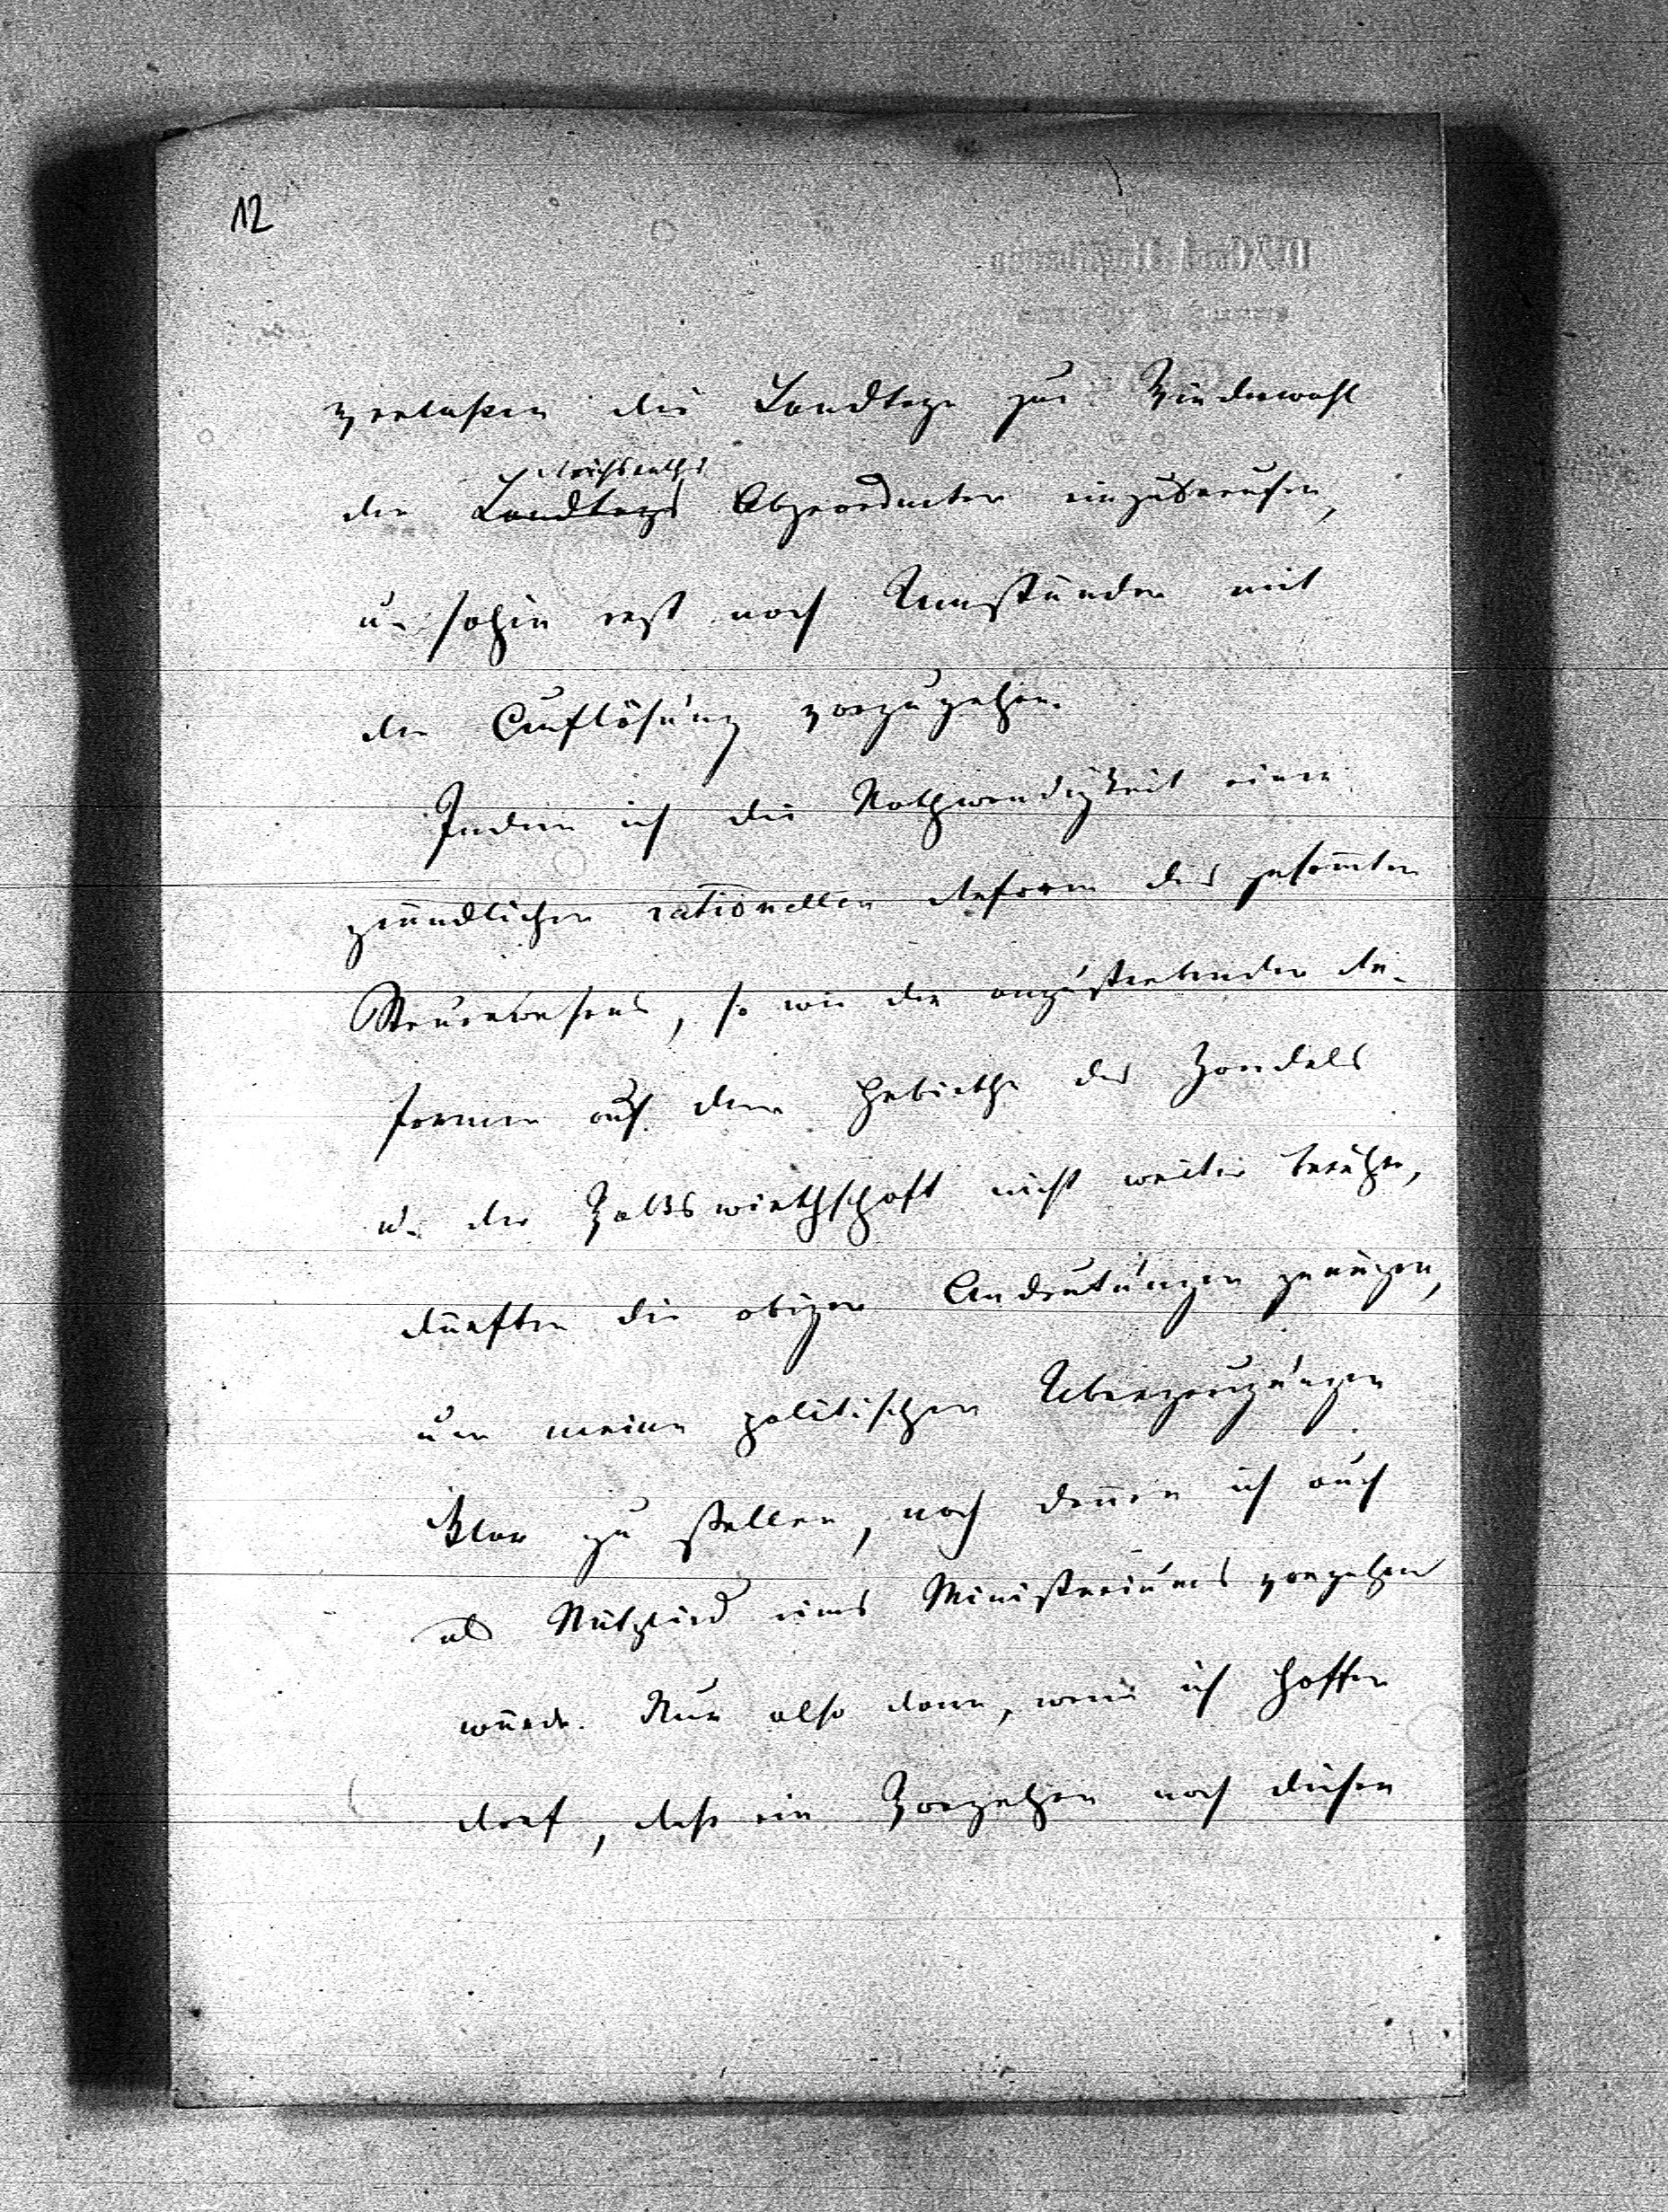 12
verlaßen die Landtage zur Wiederwahl
Reichsraths
der Landtags Abgeordneten einzuberufen,
u. sohin erst nach Umständen mit
der Auflösung vorzugehen.
Indem ich die Nothwendigkeit einer
gründlichen rationellen Reform des gesamten
Steuerwesens, so wie der anzustrebenden Re-
formen auf dem Gebiethe des Handels
u. der Volkswirthschaft nicht weiter berühre,
dürften die obigen Andeutungen genügen,
um meine politischen Überzeugungen
klar zu stellen, nach denen ich auch
als Mitglied eines Ministeriums vorgehen
würde. Nur also dann, wenn ich hoffen
darf, daß ein Vorgehen nach diesen